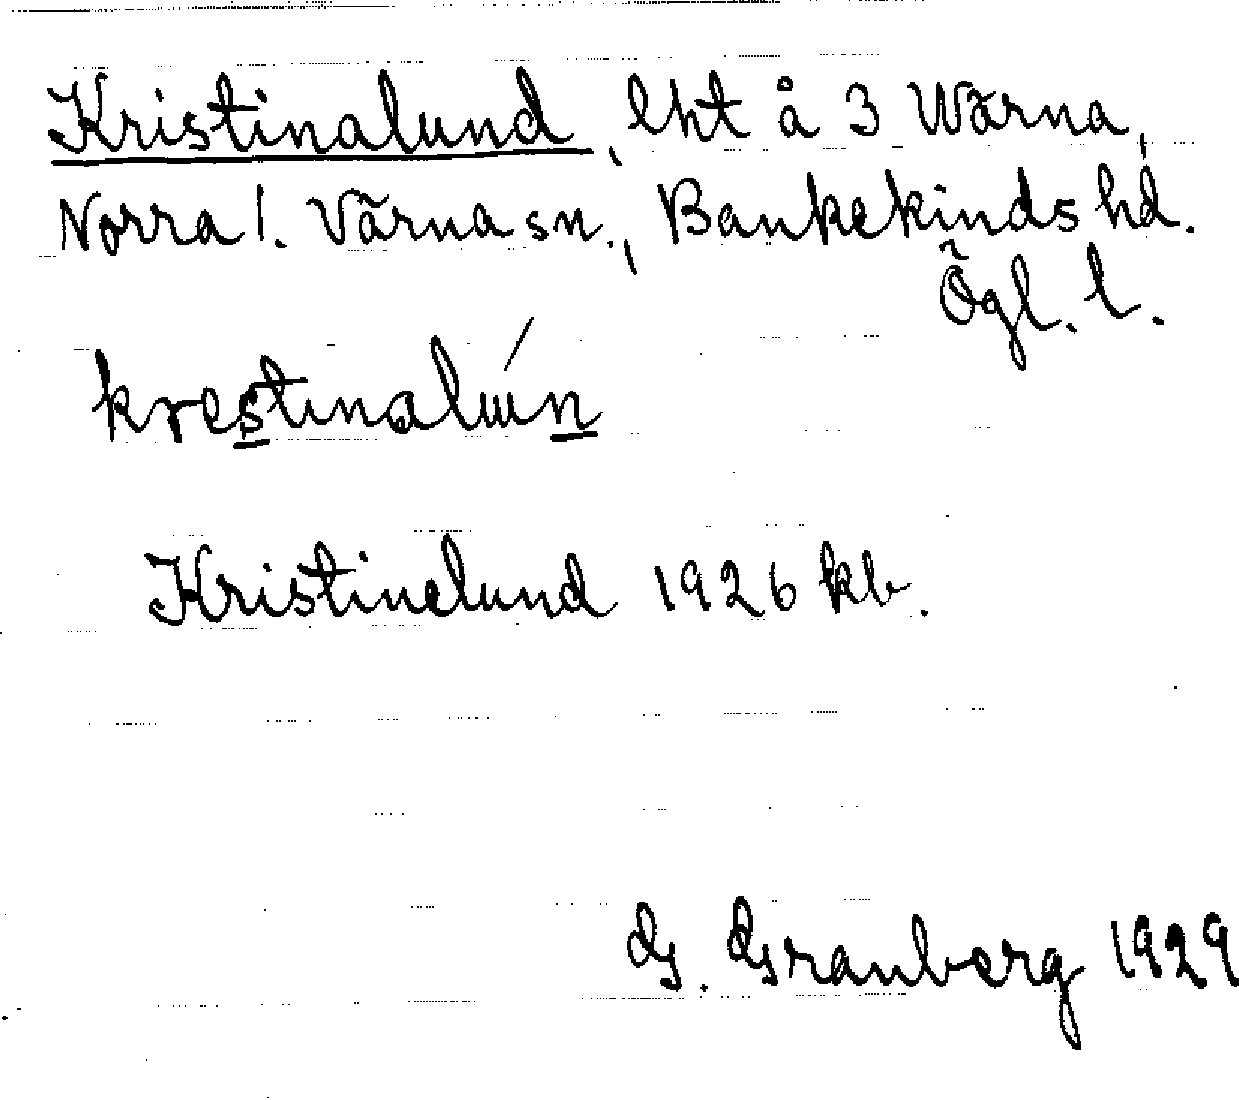 Kristinalund, lht å 3 Wärna,
Norra l. Värna sn., Bankekinds hd.
Ögl. l.
krestinalún
Kristinelund 1926 kb.
G. Granberg 1929